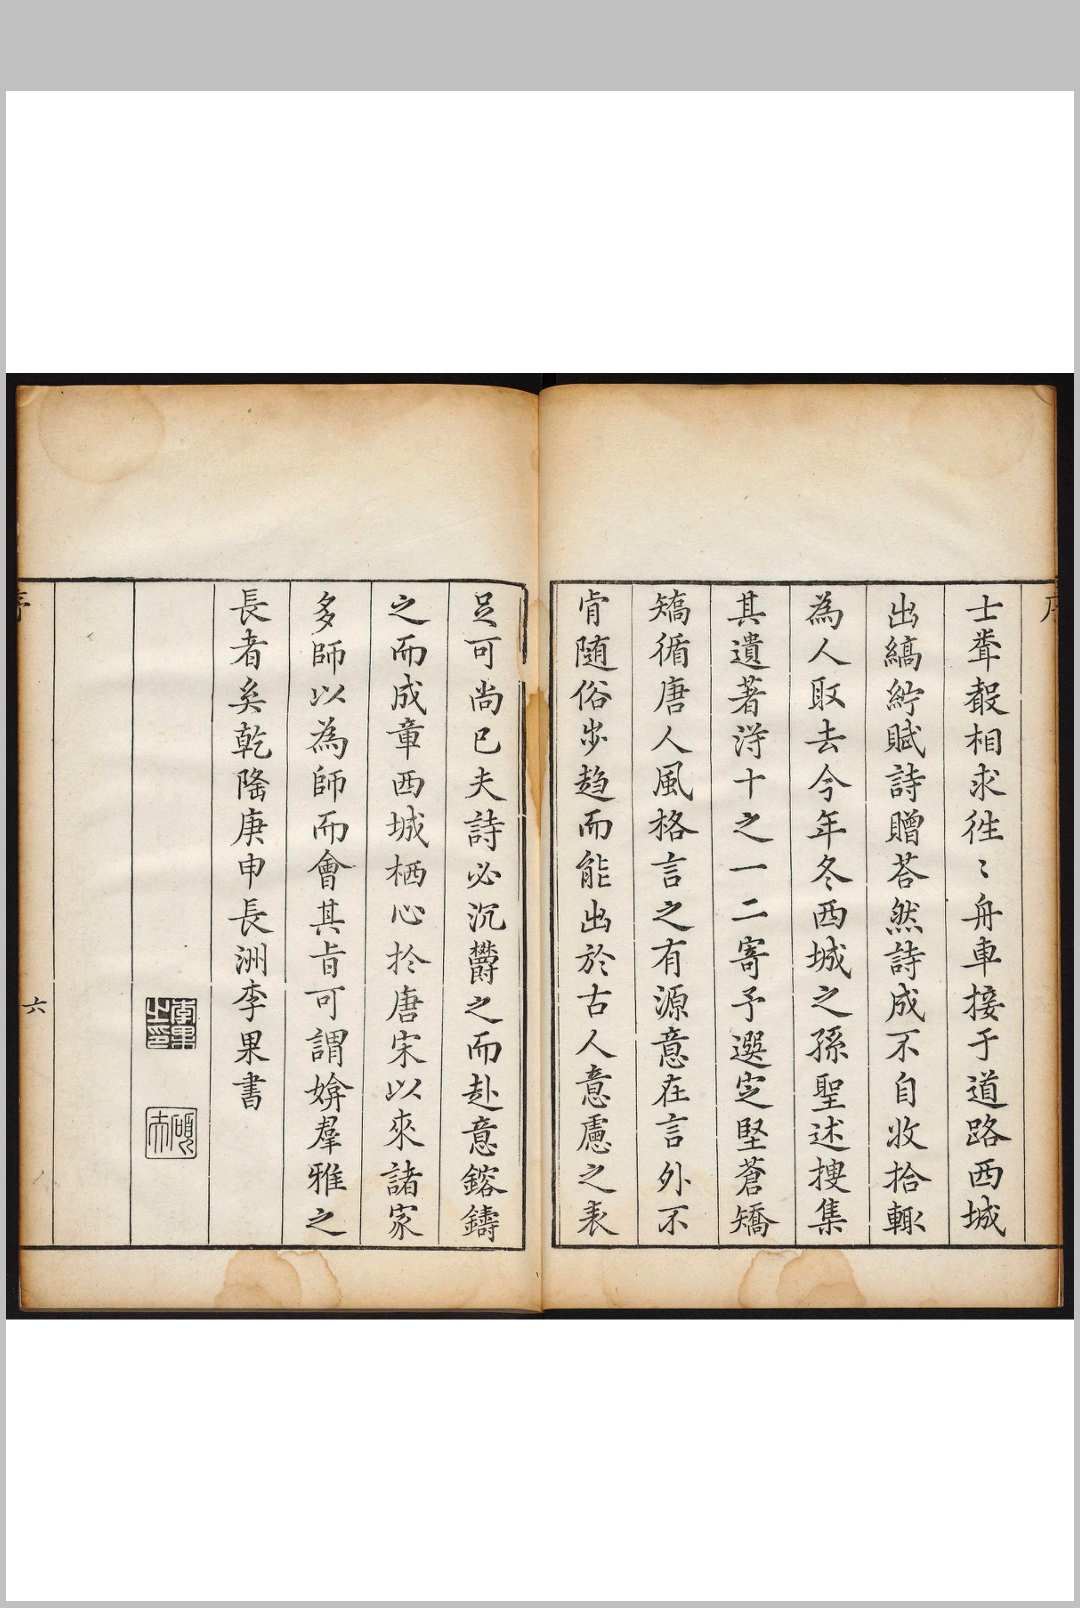 序
士聲聲相求徃〻舟車接于道路西城
出縞紵賦詩贈荅然詩成不自收拾輙
為人取去今年冬西城之孫聖述搜集
其遺著得十之一二寄予選定堅蒼矯
矯循唐人風格言之有源意在言外不
肯隨俗步趋而能出於古人意慮之表
足可尚已夫詩必沉欝之而赴意鎔鑄
之而成章西城栖心扵唐宋以來諸家
多師以為師而會其旨可謂媕羣雅之
長者矣乾隆庚申長洲李果書
李果之印
碩夫
序
六